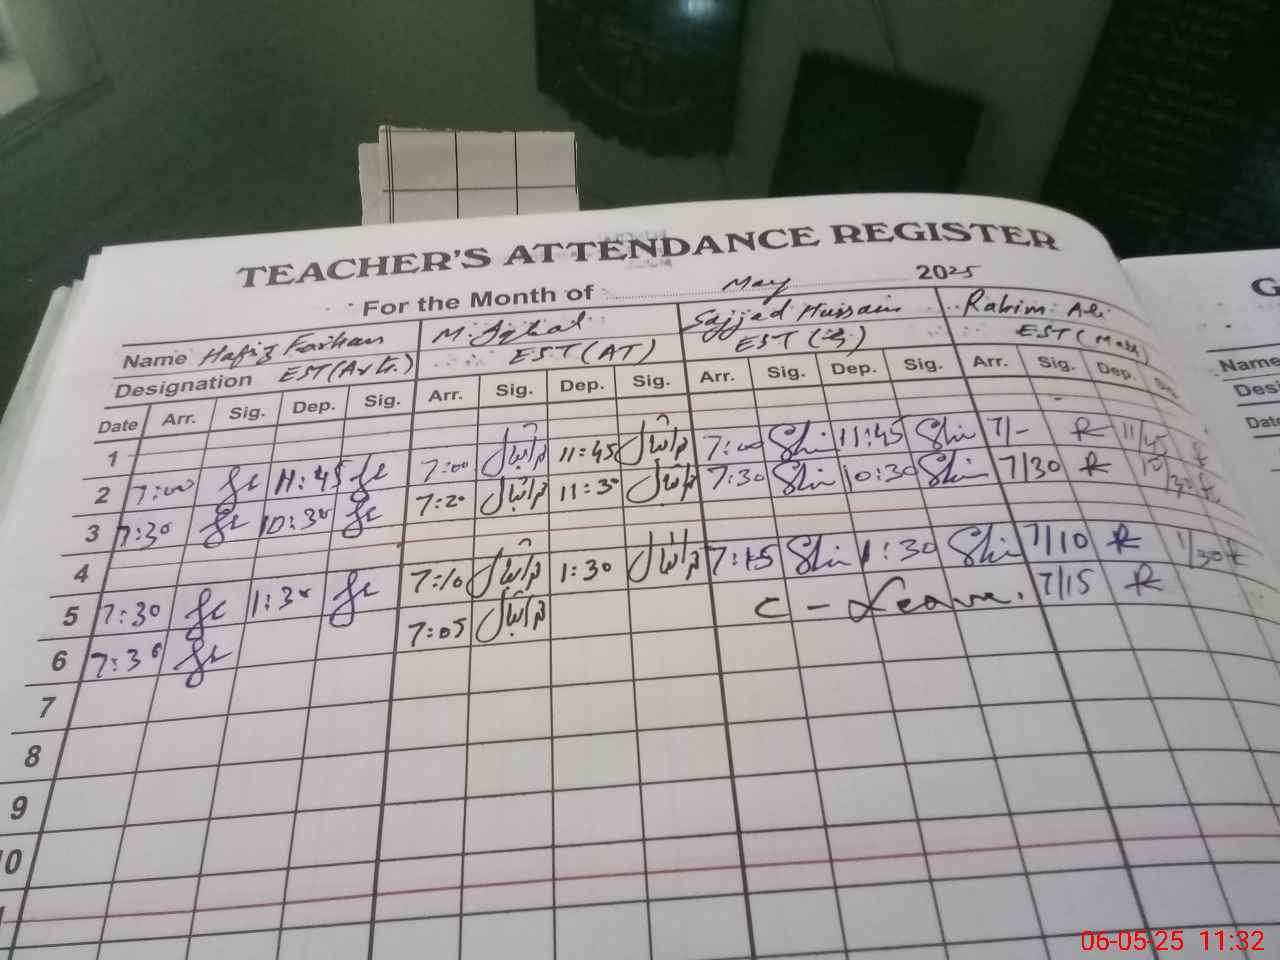 TEACHER'S ATTENDANCE REGISTER
For the Month of May 2025
Name Hafiz Farhan M. Iqbal Sajjad Hussain Rahim Ali
Designation EST (Arb.) EST (AT) EST ( EST (Math)
Date Arr. Sig. Dep. Sig. Arr. Sig. Dep. Sig. Arr. Sig. Dep. Sig. Arr. Sig. Dep. Sig.
1
2 7:00 11:45 7:00 11:45 7:00 11:45 7/- 11/45
3 7:30 10:30 7:20 11:30 7:30 10:30 7/30 10/30
4
5 7:30 1:30 7:10 1:30 7:15 1:30 7/10 1/30
6 7:30 7:05 C - Leave. 7/15
7
8
9
10
G
Name
Desi
Date
06-05-25 11:32